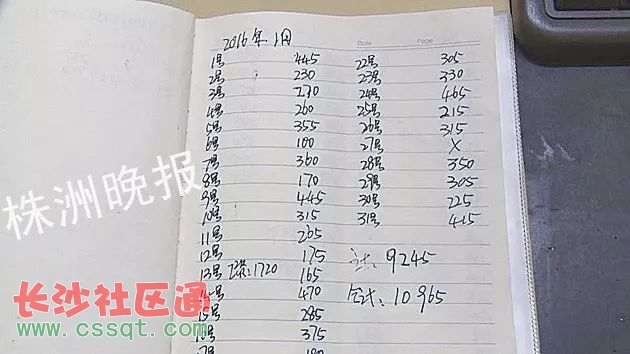 2016年1月
1号 445
2号 230
3号
4号 260
5号 355
6号 100
7号 360
8号 170
9号 445
10号 315
11号 265
12号 175
13号 工资:1720 165
470
15号 285
16号 375
17号
Date Page
22号 305
23号 330
24号 465
25号 215
26号 315
27号 X
28号 350
29号 305
30号 225
31号 415
9245
合计: 10965
株洲晚报
长沙社区通
www.cssqt.com